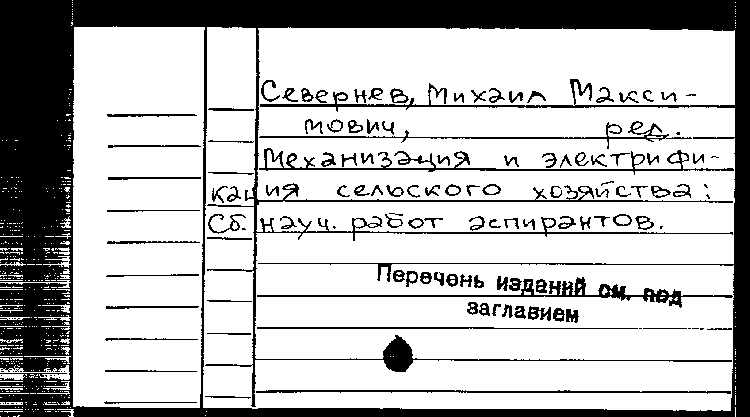 Севернев, Михаил Макси-
мович, ред.
Механизация и электрифи-
кация сельского хозяйства:
Сб. науч. работ аспирантов.
Перечень изданий см. под
заглавием